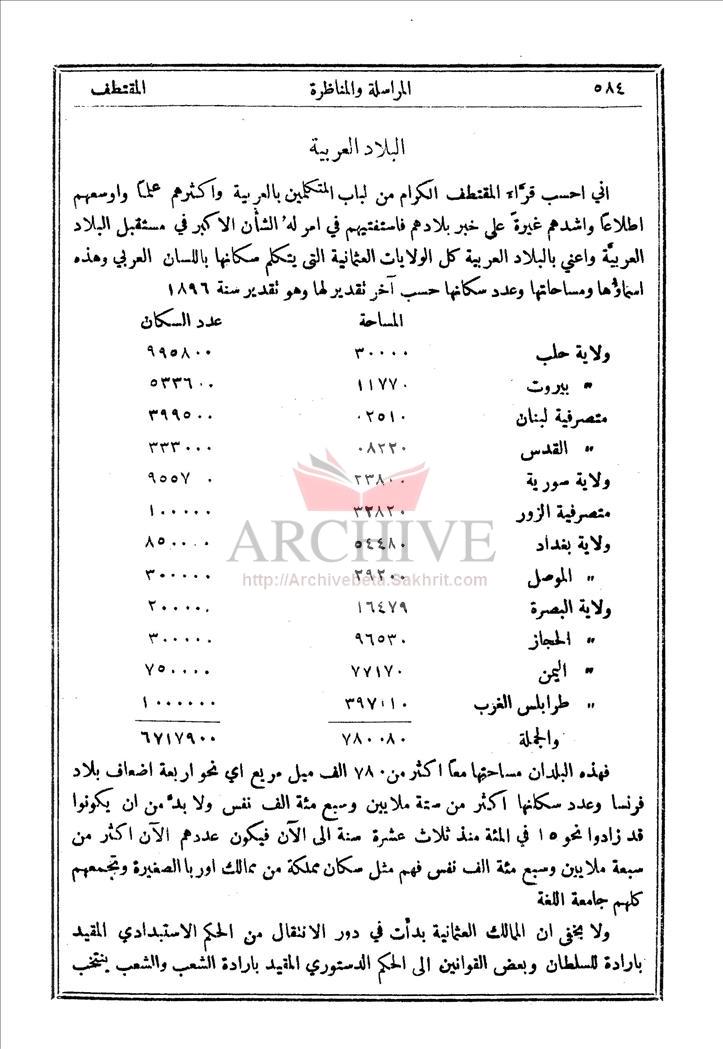 ٥٨٤ المراسلة والمناظرة المقتطف
البلاد العربية
اني احسب قرَّاءَ المقتطف الكرام من لباب المتكلمين بالعربية واكثرهم علماً واوسعهم
اطلاعاً واشدهم غيرةً على خير بلادهم فاستفتيهم في امر لهُ الشأن الاكبر في مستقبل البلاد
العربيَّة واعني بالبلاد العربية كل الولايات العثمانية التي يتكلم سكانها باللسان العربي وهذه
اسماؤُها ومساحاتها وعدد سكانها حسب آخر تقدير لها وهو تقدير سنة ١٨٩٦
المساحة عدد السكان
ولاية حلب ٣٠٠٠٠ ٩٩٥٨٠٠
" بيروت ١١٧٧٠ ٥٣٣٦٠٠
متصرفية لبنان ٠٢٥١٠ ٣٩٩٥٠٠
" القدس ٠٨٢٢٠ ٣٣٣٠٠٠
ولاية سورية ٢٣٨٠٠ ٩٥٥٧ ٠
متصرفية الزور ٣٢٨٢٠ ١٠٠٠٠٠
ولاية بغداد ٥٤٤٨٠ ٨٥٠٠٠٠
ARCHIVE
" الموصل ٢٩٢٠٠ ٣٠٠٠٠٠
http://Archivebeta.Sakhrit.com
ولاية البصرة ١٦٤٧٩ ٢٠٠٠٠٠
" الحجاز ٩٦٥٣٠ ٣٠٠٠٠٠
" اليمن ٧٧١٧٠ ٧٥٠٠٠٠
" طرابلس الغرب ٣٩٧٠١٠ ١٠٠٠٠٠٠
والجملة ٧٨٠٠٨٠ ٦٧١٧٩٠٠
فهذه البلدان مساحتها معاً اكثر من ٧٨٠ الف ميل مربع اي نحو اربعة اضعاف بلاد
فرنسا وعدد سكانها اكثر من ستة ملايين وسبع مئة الف نفس ولا بدَّ من ان يكونوا
قد زادوا نحو ١٥ في المئة منذ ثلاث عشرة سنة الى الآن فيكون عددهم الآن اكثر من
سبعة ملايين وسبع مئة الف نفس فهم مثل سكان مملكة من ممالك اوربا الصغيرة وتجمعهم
كلهم جامعة اللغة
ولا يخفى ان الممالك العثمانية بدأت في دور الانتقال من الحكم الاستبدادي المقيد
بارادة للسلطان وبعض القوانين الى الحكم الدستوري المقيد بارادة الشعب والشعب ينتخب